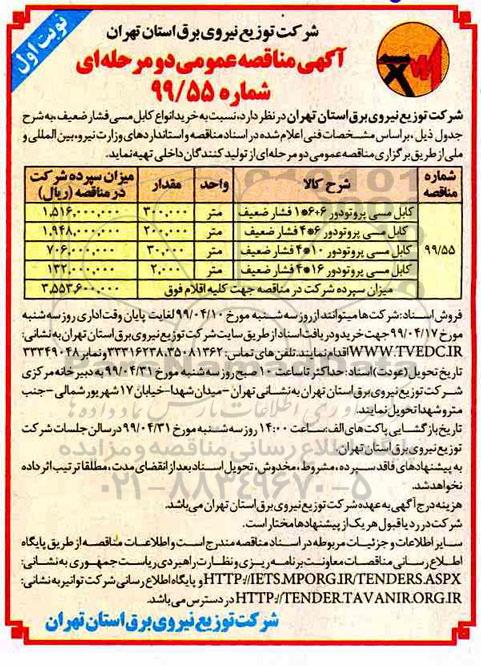 نوبت اول
شرکت توزیع نیروی برق استان تهران
آگهی مناقصه عمومی دو مرحله ای
شماره ۹۹/۵۵
شرکت توزیع نیروی برق استان تهران در نظر دارد، نسبت به خرید انواع کابل مسی فشار ضعیف، به شرح
جدول ذیل، بر اساس مشخصات فنی اعلام شده در اسناد مناقصه و استانداردهای وزارت نیرو، بین المللی و
ملی از طریق برگزاری مناقصه عمومی دو مرحله ای از تولید کنندگان داخلی تهیه نماید.
شماره مناقصه شرح کالا واحد مقدار میزان سپرده شرکت در مناقصه (ریال)
۹۹/۵۵ کابل مسی پروتودور ۶+۶*۱ فشار ضعیف متر ۳۰۰,۰۰۰ ۱,۵۱۶,۰۰۰,۰۰۰
کابل مسی پروتودور ۶*۴ فشار ضعیف متر ۲۰۰,۰۰۰ ۱,۹۴۸,۰۰۰,۰۰۰
کابل مسی پروتودور ۱۰*۴ فشار ضعیف متر ۳۰,۰۰۰ ۷۰۶,۰۰۰,۰۰۰
کابل مسی پروتودور ۱۶*۴ فشار ضعیف متر ۲,۰۰۰ ۱۳۲,۰۰۰,۰۰۰
میزان سپرده شرکت در مناقصه جهت کلیه اقلام فوق ۳,۵۵۳,۶۰۰,۰۰۰
فروش اسناد: شرکت ها میتوانند از روز سه شنبه مورخ ۹۹/۰۴/۱۰ لغایت پایان وقت اداری روز سه شنبه
مورخ ۹۹/۰۴/۱۷ جهت خرید و دریافت اسناد از طریق سایت شرکت توزیع نیروی برق استان تهران به نشانی:
WWW.TVEDC.IR اقدام نمایند. تلفن های تماس: ۳۵۰۸۱۳۶۲، ۳۳۳۱۶۲۳۸ و نمابر ۳۳۳۴۹۰۴۸
تاریخ تحویل (عودت) اسناد: حداکثر تا ساعت ۱۰ صبح روز سه شنبه مورخ ۹۹/۰۴/۳۱ به دبیرخانه مرکزی
شرکت توزیع نیروی برق استان تهران به نشانی تهران - میدان شهدا - خیابان ۱۷ شهریور شمالی - جنب
مترو شهدا تحویل نمایند.
تاریخ بازگشایی پاکت های الف: ساعت ۱۴:۰۰ روز سه شنبه مورخ ۹۹/۰۴/۳۱ در سالن جلسات شرکت
توزیع نیروی برق استان تهران.
به پیشنهادهای فاقد سپرده، مشروط، مخدوش، تحویل اسناد بعد از انقضای مدت، مطلقا ترتیب اثر داده
نخواهد شد.
هزینه درج آگهی به عهده شرکت توزیع نیروی برق استان تهران می باشد.
شرکت در رد یا قبول هر یک از پیشنهادها مختار است.
سایر اطلاعات و جزئیات مربوطه در اسناد مناقصه مندرج است و اطلاعات مناقصه از طریق پایگاه
اطلاع رسانی مناقصات معاونت برنامه ریزی و نظارت راهبردی ریاست جمهوری به نشانی:
HTTP://IETS.MPORG.IR/TENDERS.ASPX و پایگاه اطلاع رسانی شرکت توانیر به نشانی:
HTTP://TENDER.TAVANIR.ORG.IR در دسترس می باشد.
شرکت توزیع نیروی برق استان تهران
۰۲۱-۸۸۳۴۹۶۷۰-۵